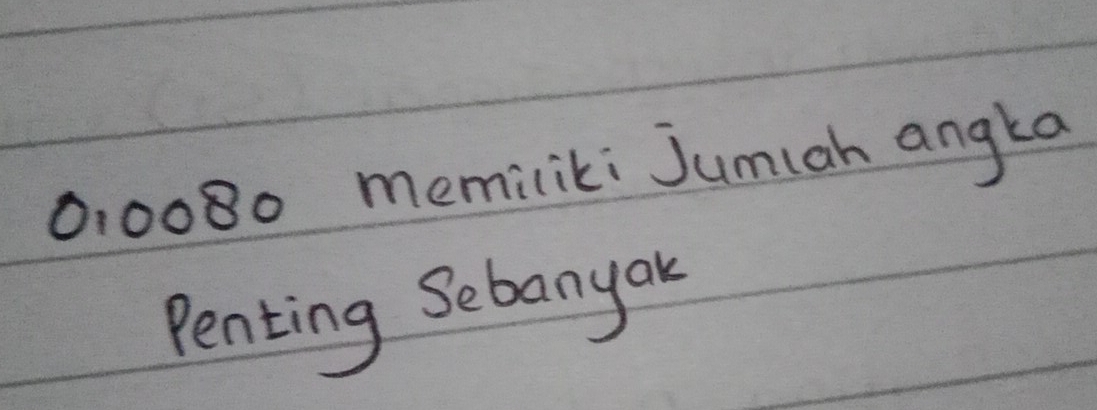 0,0080 memiliki Jumlah angka
Penting Sebanyak